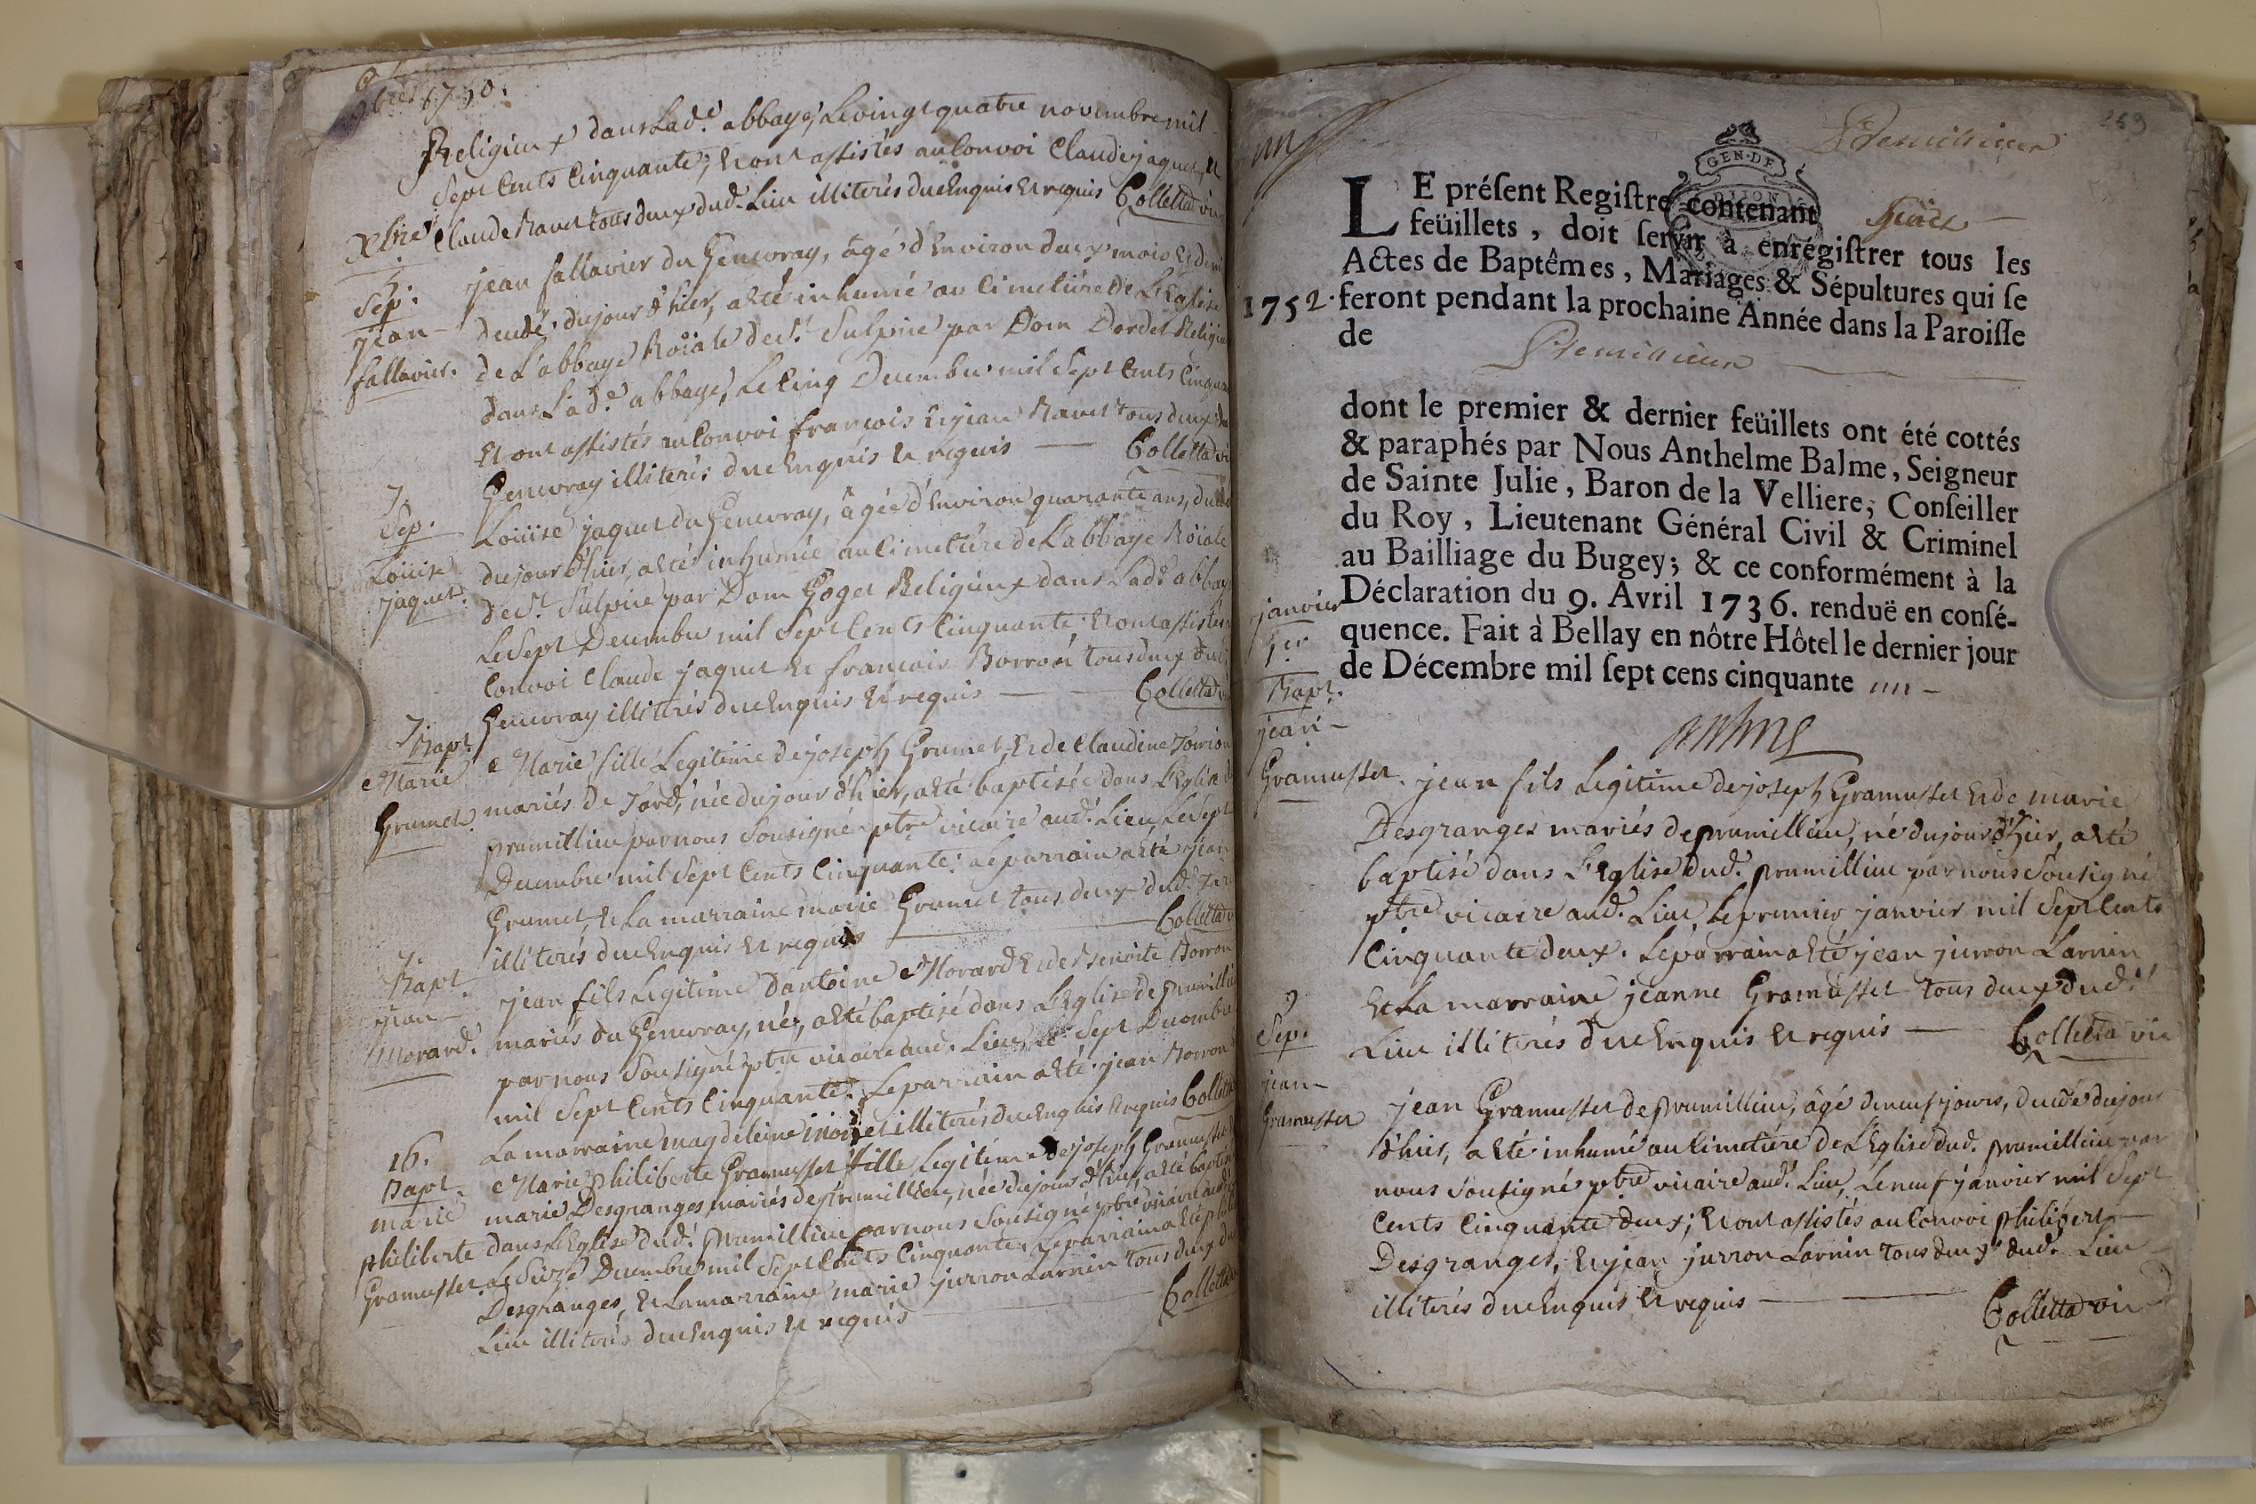 9bre 1750.
Religieux dans lad.e abbaye, le vingt quatre novembre mil
sept cents cinquante; et ont assistés au convoi Claude jaquet, et
Claude Ravet tous deux dud. Lieu illiterés duement enquis et requis Colletta vic
Xbre
5.
Sep.
jean
fallavier.
jean fallavier du Genevray, âgé d'Environ deux mois et demi
decedé du jour d'hier, a eté inhumé au Cimetiére de L'Eglise
de L'abbaye Roïale de St. Sulpice par Dom Dordet Religieux
dans Lad.e abbaye, Le Cinq Decembre mil Sept Cents Cinquante
et ont assistés au Convoi françois et jean Ravet tous deux du
Genevray illiterés duement enquis et requis — Colletta vic
7.
Sep.
Loüise
jaquet.
Loüise jaquet du Genevray, âgée d'Environ quarante ans, decedée
du jour d'hier, a eté inhumée au Cimetiére de L'abbaye Roïale
de St. Sulpice par Dom Goget Religieux dans Lad.e abbaye
Le Sept Decembre mil Sept Cents Cinquante. et ont assistés au
Convoi Claude jaquet et francois Borron tous deux dud.
Genevray illiterés duement enquis et requis — Colletta vic
7.
Bapt.
Marie
Grumet.
Marie fille Legitime de joseph Grumet, et de Claudine
mariés de Jord, née du jour d'hier, a eté baptisée dans L'Eglise de
prumillieu par nous Sousigné ptre vicaire aud. Lieu, Le Sept
Decembre mil Sept Cents Cinquante. Le parrain a eté jean
Grumet, et La marraine marie Grumet tous deux dud.
illiterés duement enquis et requis — Colletta vic
7.
Bapt.
jean
Morard.
jean fils Legitime D'antoine Morard et de Benoite Borron
mariés du Genevray, né, a eté baptisé dans L'Eglise de prumillieu
par nous Sousigné ptre vicaire aud. Lieu, Le Sept Decembre
mil Sept Cents Cinquante. Le parrain a eté jean Borron
La marraine magdeleine illiterés duement enquis et requis Colletta
16.
Bapt.
marie
philiberte
Gramusset.
Marie philiberte Gramusset fille Legitime de joseph Gramusset
marie Desgranges mariés de prumillieu, née du jour d'hier, a eté baptisée
dans L'Eglise dud. prumillieu par nous Sousigné ptre vicaire aud.
Le Seize Decembre mil Sept Cents Cinquante. Le parrain a eté
Desgranges, et La marraine marie jurron Larnin tous deux dud.
Lieu illiterés duement enquis et requis — Colletta
un
269
Premillieu
GEN·DE
DIJON
LE préſent Regiſtre contenant huict
feüillets, doit ſervir à enrégiſtrer tous les
Actes de Baptêmes, Mariages & Sépultures qui ſe
1752. feront pendant la prochaine Année dans la Paroiſſe
de Premillieu
dont le premier & dernier feüillets ont été cottés
& paraphés par Nous Anthelme Balme, Seigneur
de Sainte Julie, Baron de la Velliere; Conſeiller
du Roy, Lieutenant Général Civil & Criminel
au Bailliage du Bugey; & ce conformément à la
Déclaration du 9. Avril 1736. renduë en conſé-
quence. Fait à Bellay en nôtre Hôtel le dernier jour
de Décembre mil ſept cens cinquante un —
janvier
1er
Bapt.
jean —
Gramusset.
jean fils Legitime de joseph Gramusset et de marie
Desgranges mariés de prumillieu, né du jour d'hier, a eté
baptisé dans L'Eglise dud. prumillieu par nous Sousigné
ptre vicaire aud. Lieu, Le premier janvier mil Sept Cents
Cinquante deux. Le parrain a eté jean jurron Larnin
et La marraine jeanne Gramusset tous deux dud.
Lieu illiterés duement enquis et requis — Colletta vic
9
Sep.
jean —
Gramusset
jean Gramusset de prumillieu, âgé de neuf jours, decedé du jour
d'hier, a eté inhumé au Cimetiére de L'Eglise dud. prumillieu par
nous Sousigné ptre vicaire aud. Lieu, Le neuf janvier mil Sept
Cents Cinquante deux; et ont assistés au Convoi philibert
Desgranges, et jean jurron Larnin tous deux dud. Lieu
illiterés duement enquis et requis — Colletta vic